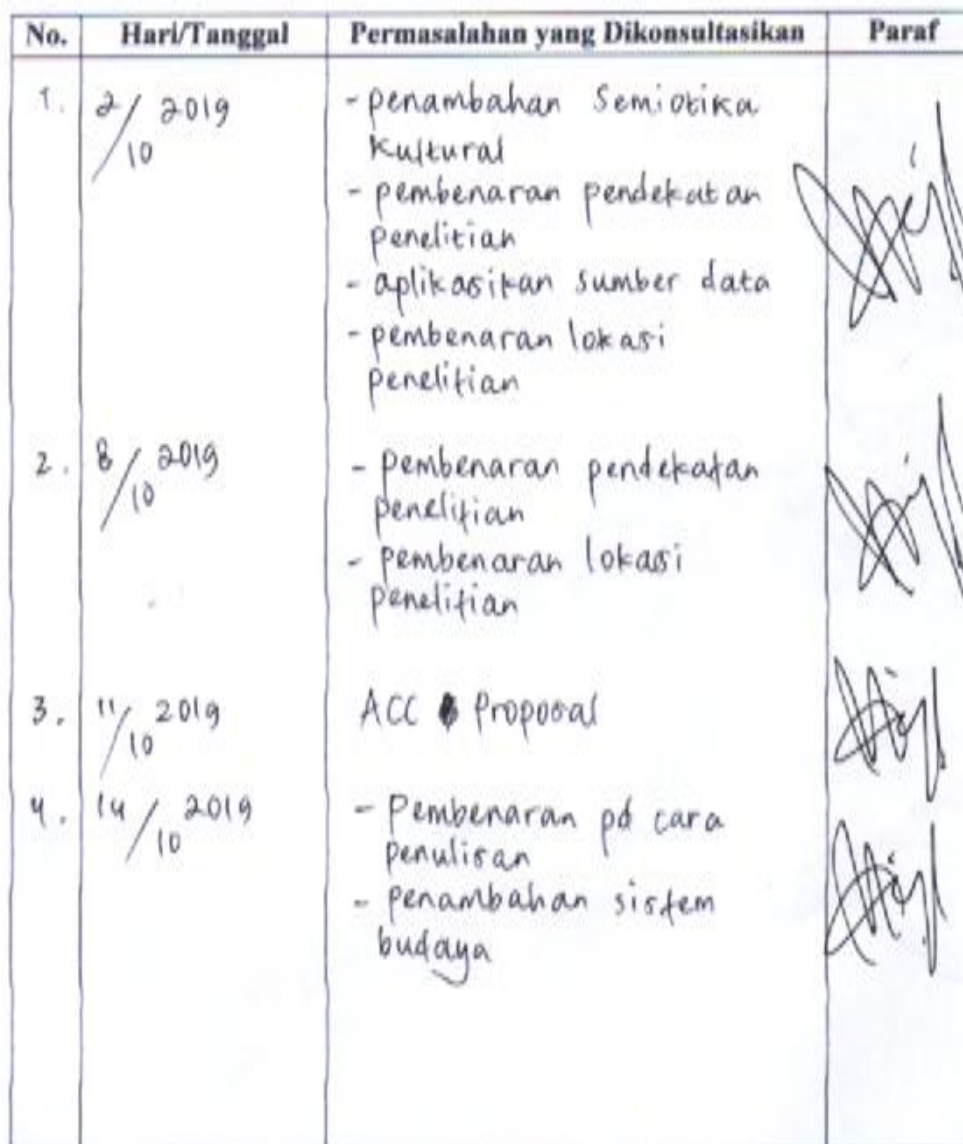 No. Hari/Tanggal Permasalahan yang Dikonsultasikan Paraf
1. 2/10 2019 - penambahan Semiotika
Kultural
- pembenaran pendekatan
penelitian
- aplikasikan sumber data
- pembenaran lokasi
penelitian
2. 8/10 2019 - Pembenaran pendekatan
penelitian
- pembenaran lokasi
penelitian
3. 11/10 2019 ACC Proposal
4. 14/10 2019 - Pembenaran pd cara
penulisan
- penambahan sistem
budaya